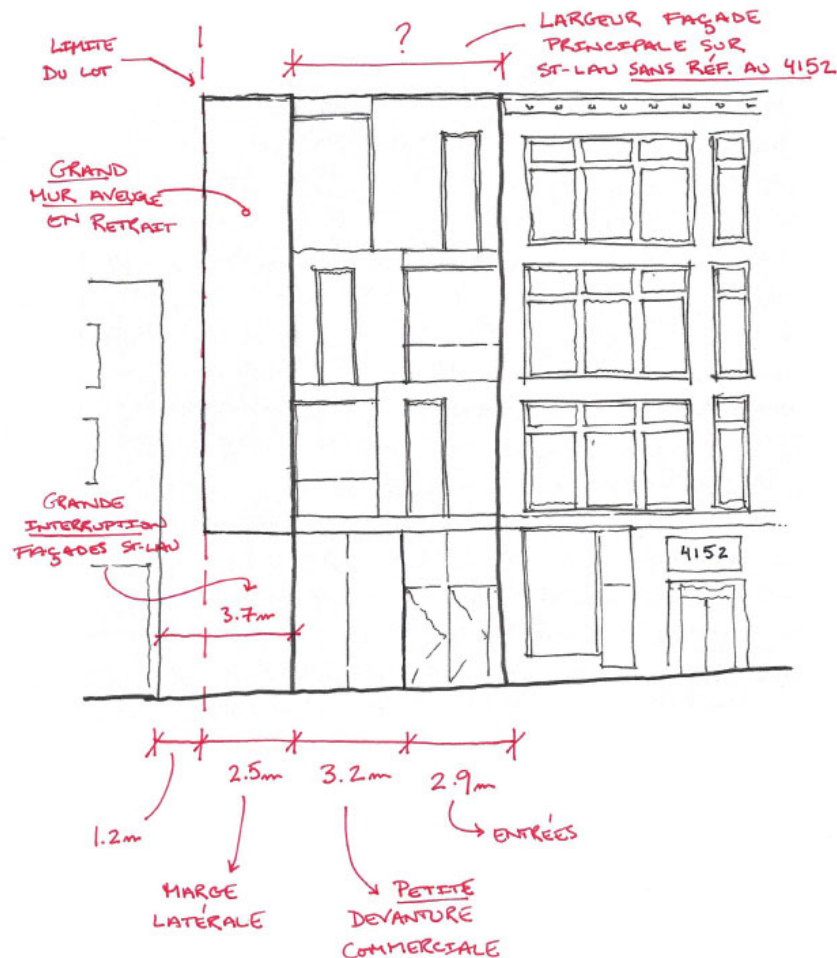 LIMITE
DU LOT
?
LARGEUR FAÇADE
PRINCIPALE SUR
ST-LAU SANS RÉF. AU 4152
GRAND
MUR AVEUGLE
EN RETRAIT
GRANDE
INTERRUPTION
FAÇADES ST-LAU
3.7m
4152
1.2m
2.5m
3.2m
2.9m
ENTRÉES
MARGE
LATÉRALE
PETITE
DEVANTURE
COMMERCIALE